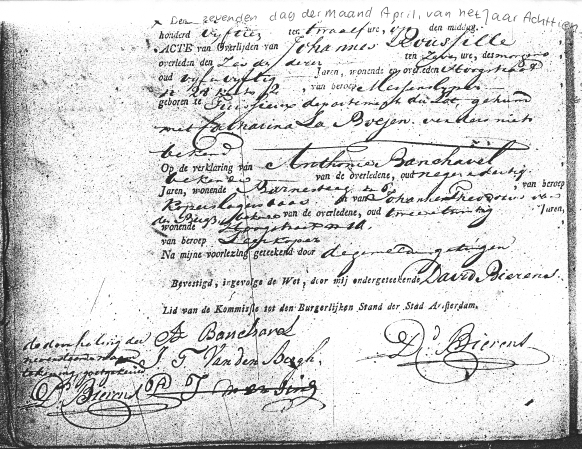 Den zevenden dag der Maand April, van het Jaar Achttien
honderd vijftien ten twaalf ure, des middag.
ACTE van Overlijden van Johannes Roussille
overleden den Zesde dezer ten Zeve ure, des morgens
oud vijfenvijftig Jaaren, wonende en overleden Hoogstraat
van beroep Messenslyper
geboren te departement du Lot, gehuwd
met Catharina La Boejen verders niet
bekend
Op de verklaring van Anthonie Banchavel
bekende van de overledene, oud negendertig
Jaren, wonende Barnesteeg n 6 van beroep
Koperslagersbaas en van Johannes Theodorus van
den Bergh bekende van de overledene, oud tweentwintig Jaren,
wonende Hoogstraat
van beroep
Na mijne voorlezing geteekend door de gemelde getuigen
Bevestigd, ingevolge de Wet, door mij ondergeteekende David Bierens
Lid van de Kommissie tot den Burgerlijken Stand der Stad Amsterdam.
de doorhaling der
nevenstaande naam
tekening goedgekeurd
A Banchard
J T Van den Bergh
Dd Bierens
Dd Bierens